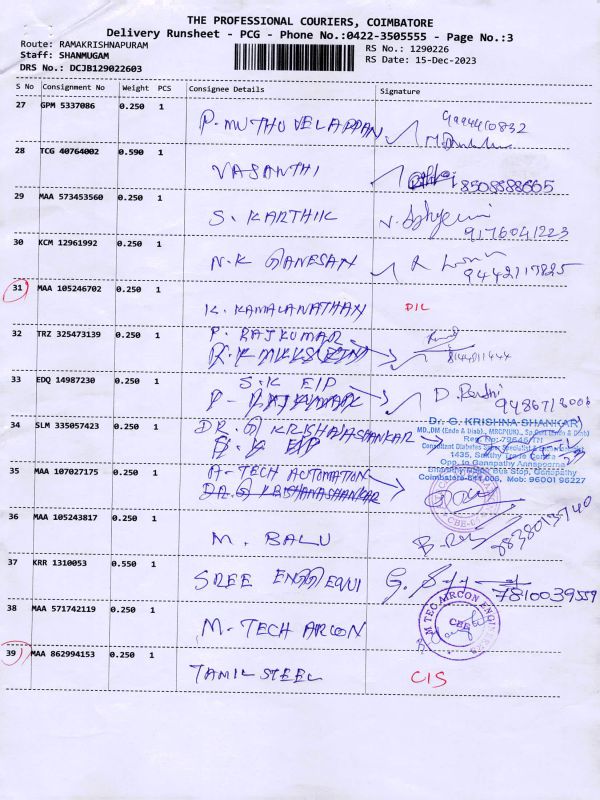 THE PROFESSIONAL COURIERS, COIMBATORE
Delivery Runsheet - PCG - Phone No.:0422-3505555 - Page No.:3
Route: RAMAKRISHNAPURAM
RS No.: 1290226
Staff: SHANMUGAM
RS Date: 15-Dec-2023
DRS No.: DCJB129022603
S No Consignment No Weight PCS Consignee Details Signature
27 GPM 5337086 0.250 1
P. MUTHU VELAPPAN
28 TCG 40764002 0.590 1
VASANTHI 8508588665
29 MAA 573453560 0.250 1
S. KARTHIK 9176041223
30 KCM 12961992 0.250 1
N.K GANESAN
31 MAA 105246702 0.250 1
K. KAMALANATHAN DIL
32 TRZ 325473139 0.250 1
P. RAJKUMAR
33 EDQ 14987230 0.250 1
S.K EIP
P. RAJKUMAR
34 SLM 335057423 0.250 1
DR. G KRISHNASHANKAR
S.K EIP
Dr. G. KRISHNA SHANKAR
1435, Sakthy Trade Centre
Opp. to Ganapathy Annapoorna
Coimbatore-641 006, Mob: 96001 96227
35 MAA 107027175 0.250 1
A-TECH AUTOMATION
DR.G KRISHNASHANKAR
36 MAA 105243817 0.250 1
M. BALU
37 KRR 1310053 0.550 1
SREE 7810039559
38 MAA 571742119 0.250 1
M-TECH ARCON
CBE
39 MAA 862994153 0.250 1
TAMIL STEEL CIS